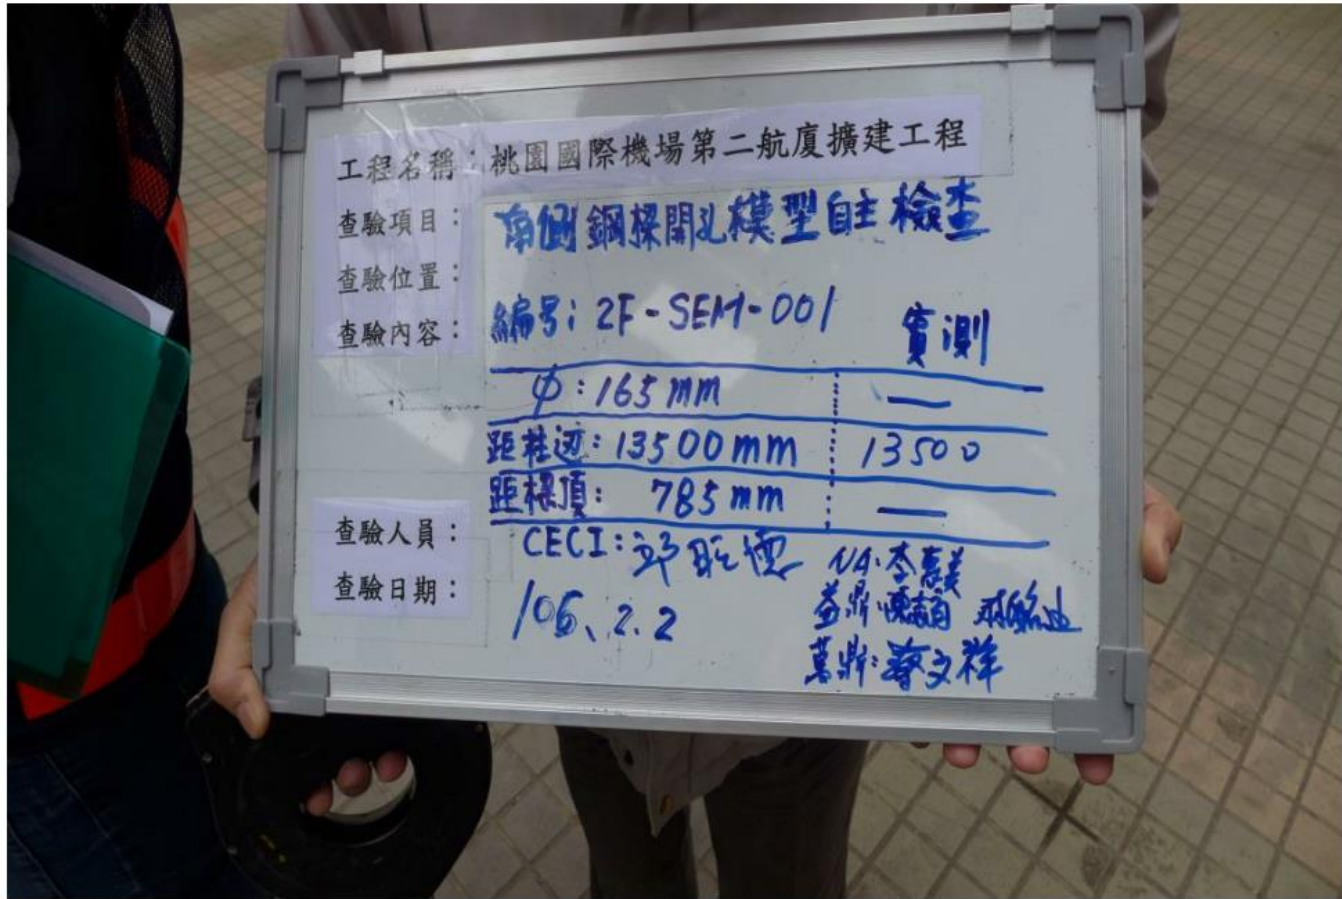 工程名稱：桃園國際機場第二航廈擴建工程
查驗項目：南側鋼樑開孔模型自主檢查
查驗位置：
查驗內容：編号：2F-SEM-001 實測
φ：165mm —
距柱边：13500mm 13500
距樑頂：785mm —
查驗人員：CECI：邱 NA：李惠美
查驗日期：106、2.2 益鼎：
萬鼎：蔡文祥